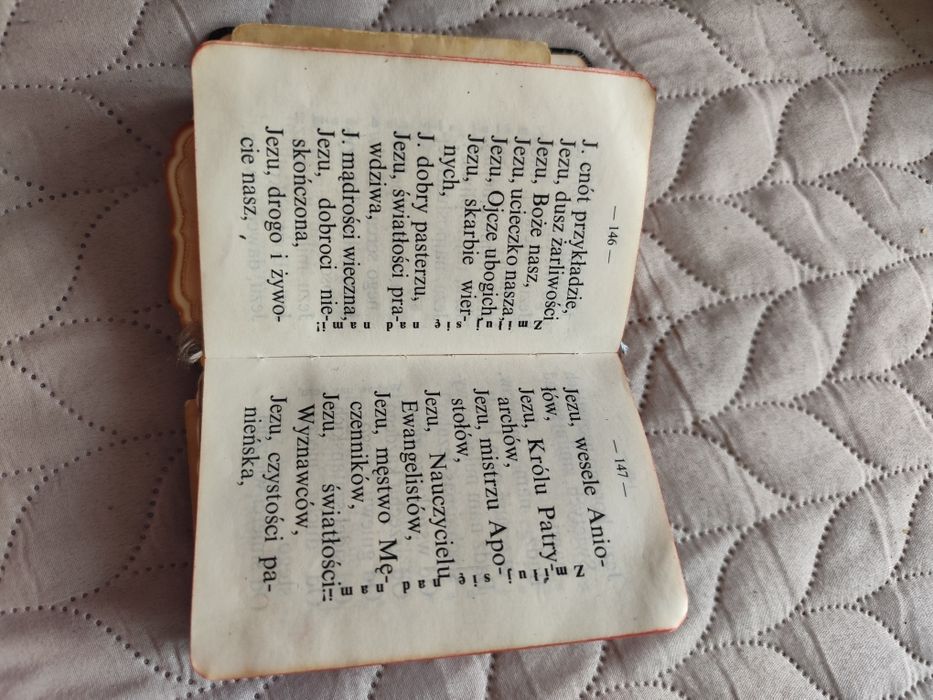 — 146 —
J. cnót przykładzie,
Jezu, dusz żarliwości
Jezu, Boże nasz,
Jezu, ucieczko nasza,
Jezu, Ojcze ubogich,
Jezu, skarbie wier-
nych,
J. dobry pasterzu,
Jezu, światłości pra-
wdziwa,
J. mądrości wieczna,
Jezu, dobroci nie-
skończona,
Jezu, drogo i żywo-
cie nasz,
Zmiłuj się nad nami
— 147 —
Jezu, wesele Anio-
łów,
Jezu, Królu Patry-
archów,
Jezu, mistrzu Apo-
stołów,
Jezu, Nauczycielu
Ewangelistów,
Jezu, męstwo Mę-
czenników,
Jezu, światłości
Wyznawców,
Jezu, czystości pa-
nieńska,
Zmiłuj się nad nami